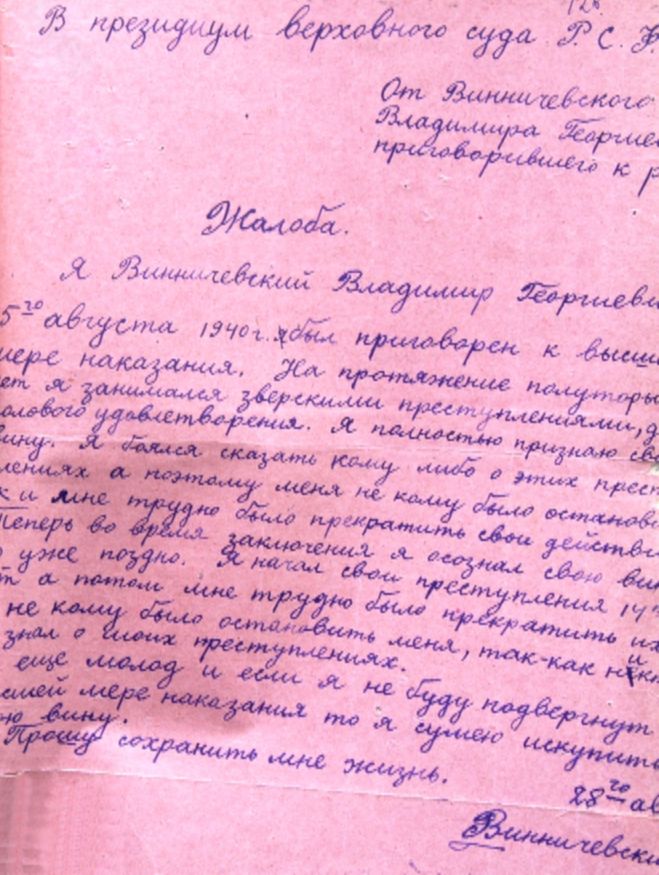 В президиум верховного суда Р. С. Ф
От Винничевского
Владимира Георгие
приговорившего к р
Жалоба.
Я Винничевский Владимир Георгиеви
5го августа 1940 г. был приговорен к высш
мере наказания. На протяжение полуторы
ет я занимался зверскими преступлениями, д
олового удовлетворения. Я полностью признаю сво
вину. Я боялся сказать кому либо о этих прест
лениях а поэтому меня не кому было останови
к и мне трудно было прекратить свои действи
Теперь во время заключения я осознал свою вин
о уже поздно. Я начал свои преступления 14
т а потом мне трудно было прекратить их
не кому было остановить меня, так-как ник
знал о моих преступлениях.
еще молод и если я не буду подвергнут
сшей мере наказания то я сумею искупить
ою вину.
Прошу сохранить мне жизнь.
28го ав
Винничевски